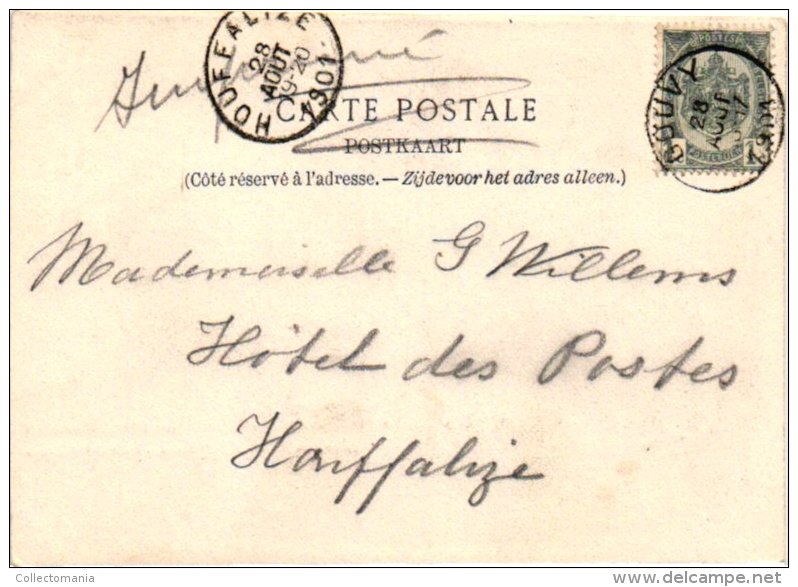 Imprimé
HOUFFALIZE
28
AOUT
19-20
1901
POSTES
GOUVY
28
AOUT
1901
CARTE POSTALE
POSTKAART
(Côté réservé à l'adresse. — Zijde voor het adres alleen.)
Mademoiselle G Willems
Hôtel des Postes
Houffalize
Collectomania
delcampe.net